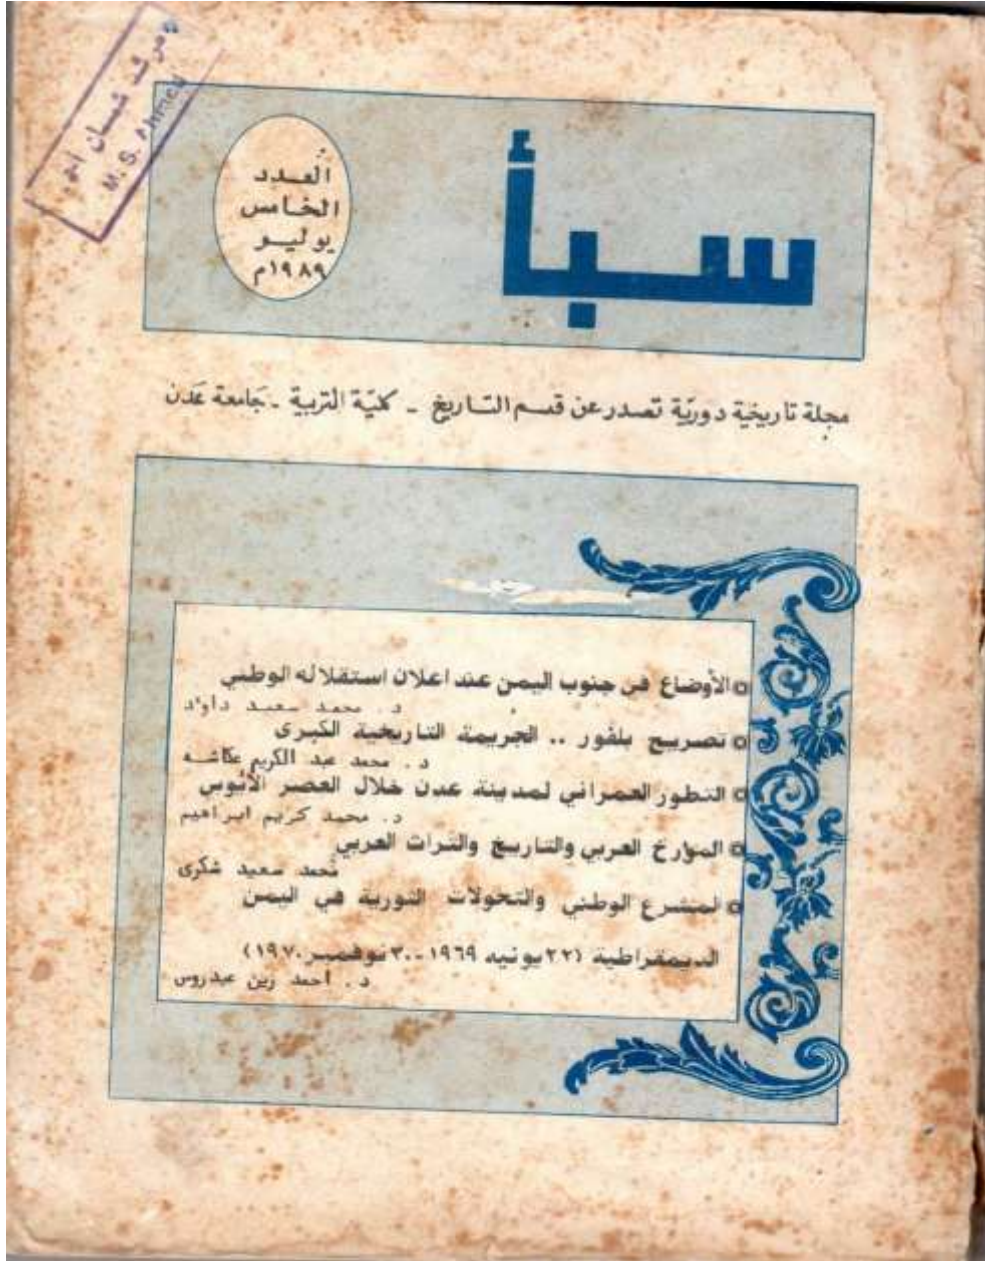 M. S. Ahmed
العدد
الخامس
يوليو
١٩٨٩م
سبأ
مجلة تاريخية دورية تصدر عن قسم التاريخ - كلية التربية - جامعة عدن
الأوضاع في جنوب اليمن عند اعلان استقلاله الوطني
د. محمد سعيد داود
تصريح بلفور .. الجريمة التاريخية الكبرى
د. محمد عبد الكريم عكاشه
التطور العمراني لمدينة عدن خلال العصر الأيوبي
د. محمد كريم ابراهيم
المؤرخ العربي والتاريخ والتراث العربي
محمد سعيد شكري
المشرع الوطني والتحولات الثورية في اليمن
الديمقراطية (٢٢ يونيه ١٩٦٩ - ٣٠ نوفمبر ١٩٧٠)
د. احمد زين عيدروس